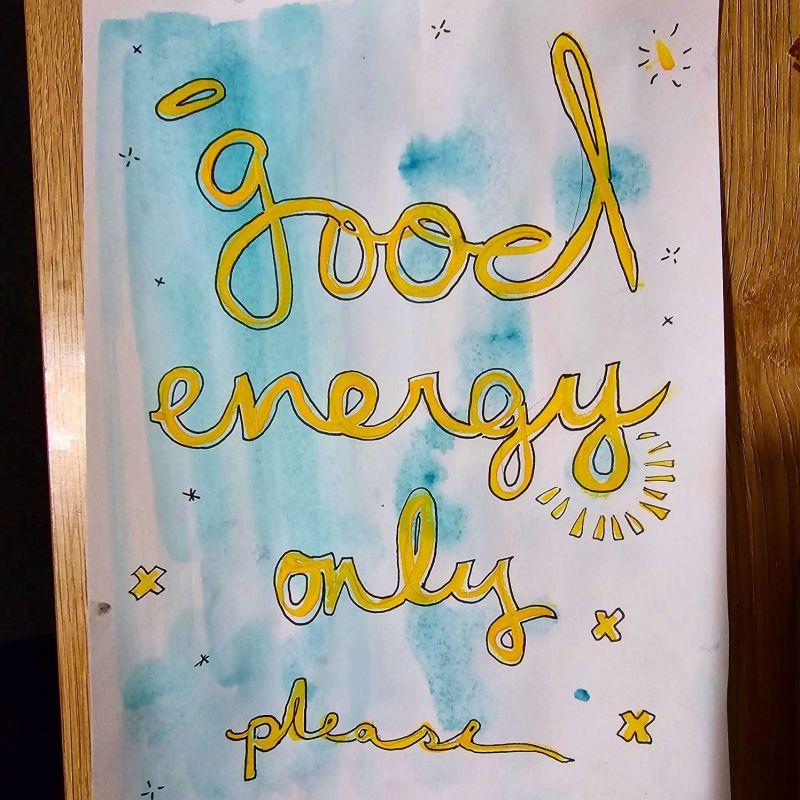 good
energy
only
please